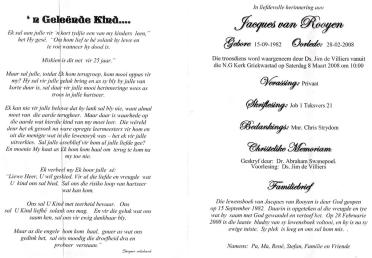 'n Geleende Kind....
Ek sal aan julle vir 'n kort tydjie een van my kinders leen,"
het Hy gesê. "Om hom lief te hê solank hy lewe en
te rou wanneer hy dood is.
Miskien is dit net vir 25 jaar."
Maar sal julle, totdat Ek hom terugroep, hom mooi oppas vir
my? Hy sal vir julle geluk bring en as sy bly by julle van
korte duur is, sal daar vir julle mooi herinneringe wees as
troos in julle hartseer.
Ek kan nie vir julle belowe dat hy lank sal bly nie, want almal
moet van die aarde terugkeer. Maar daar is waarhede op
die aarde wat hierdie kind van my moet leer. Die wêreld
deur het Ek gesoek na ware opregte leermeesters vir hom en
uit die menigte wat in die lewensryk was - het ek vir julle
uitverkies. Sal julle asseblief vir hom al julle liefde gee?
En moenie My haat as Ek hom kom haal om terug te kom na
my toe nie.
Ek verbeel my Ek hoor julle sê:
"Liewe Heer, U wil geskied. Vir al die liefde en vreugde wat
U kind ons sal bied. Sal ons die risiko loop van hartseer
wat kan kom.
Ons sal U Kind met teerheid bewaar. Ons
sal U Kind liefhê solank ons mag. En vir die geluk wat ons
saam ken, sal ons vir ewig dankbaar bly.
Maar as die engele hom kom haal, gouer as wat ons
gedink het, sal ons moedig die droefheid dra en
probeer verstaan."
Skrywer onbekend
In liefdevolle herinnering aan:
Jacques van Rooyen
Gebore 15-09-1982 Oorlede: 28-02-2008
Die troosdiens word waargeneem deur Ds. Jim de Villiers vanuit
die N.G Kerk Griekwastad op Saterdag 8 Maart 2008 om 10:00
Verassing: Privaat
Skriflesing: Job 1 Takvers 21
Bedankings: Mnr. Chris Strydom
Christelike Memoriam
Geskryf deur: Dr. Abraham Swanepoel.
Voorlesing: Ds. Jim de Villiers
Familiebrief
Die lewensboek van Jacques van Rooyen is deur God geopen
op 15 September 1982. Daarin is opgeteken al die vreugde en tye
wat hy saam met God gewandel en vertoef het. Op 28 Februarie
2008 is die laaste bladsy van sy lewensboek voltooi, en hy is nou
sy ewige tuiste. Sy plek is leeg en ons sal hom mis.
Namens: Pa, Ma, René, Stefan, Familie en Vriende